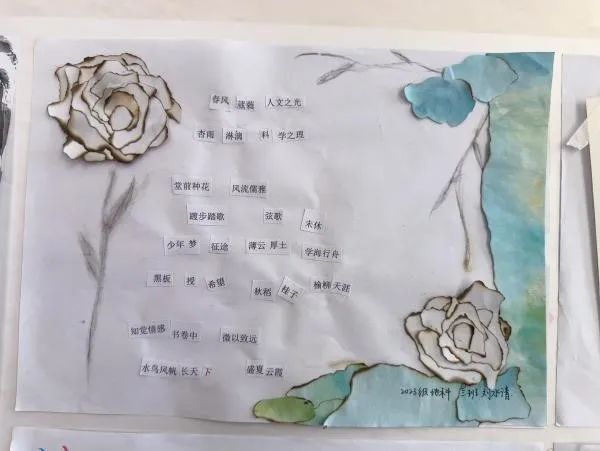 春风 葳蕤 人文之光
杏雨 淋漓 科 学之理
堂前种花 风流儒雅
踱步踏歌 弦歌 未休
少年 梦 征途 薄云 厚土 学海行舟
黑板 授 希望 秋稻 桂子 榆柳 天涯
知觉情感 书卷中 微以致远
水鸟风帆 长天 下 盛夏 云霞
2023级 地科 三班 刘